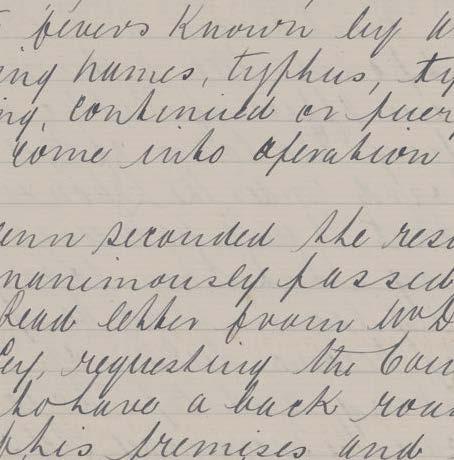 fevers known by a
ing names, typhus, ty
ng, continued or puer
come into operation
enn seconded the reso
nanimously passed
Read letter from Mr D
ey, requesting the Coun
to have a back roa
his premises and